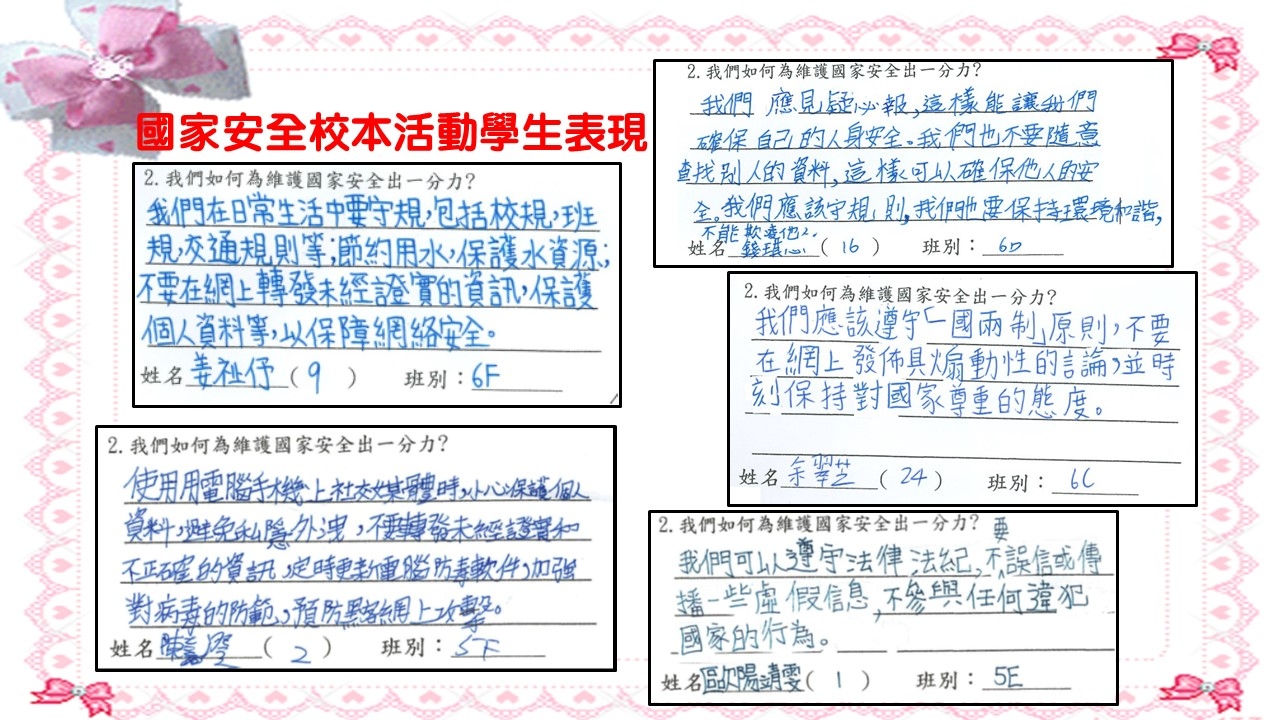 國家安全校本活動學生表現
2.我們如何為維護國家安全出一分力?
我們在日常生活中要守規,包括校規,班
規,交通規則等;節約用水,保護水資源;
不要在網上轉發未經證實的資訊,保護
個人資料等,以保障網絡安全。
姓名 姜祉伃 ( 9 ) 班別:6F
2.我們如何為維護國家安全出一分力?
使用用電腦手機上社交媒體時,小心保護個人
資料,避免私隱外洩,不要轉發未經證實和
不正確的資訊,定時更新電腦防毒軟件,加強
對病毒的防範,預防黑客網上攻擊。
姓名 陳 ( 2 ) 班別:5F
2.我們如何為維護國家安全出一分力?
我們 應見疑必報,這樣能讓我們
確保自己的人身安全。我們也不要隨意
查找別人的資料,這樣可以確保他人的安
全。我們應該守規則,我們也要保持環境和諧,
不能欺凌他人。
姓名 錢琪心 ( 16 ) 班別:6D
2.我們如何為維護國家安全出一分力?
我們應該遵守「一國兩制」原則,不要
在網上發佈具煽動性的言論,並時
刻保持對國家尊重的態度。
姓名 余翠芝 ( 24 ) 班別:6C
2.我們如何為維護國家安全出一分力?
我們可以遵守法律法紀,不要誤信或傳
播一些虛假信息,不參與任何違犯
國家的行為。
姓名 歐陽靖雯 ( 1 ) 班別:5E